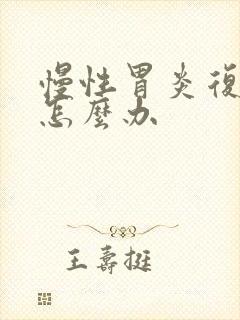 慢性胃炎復
怎麼办
王壽挺